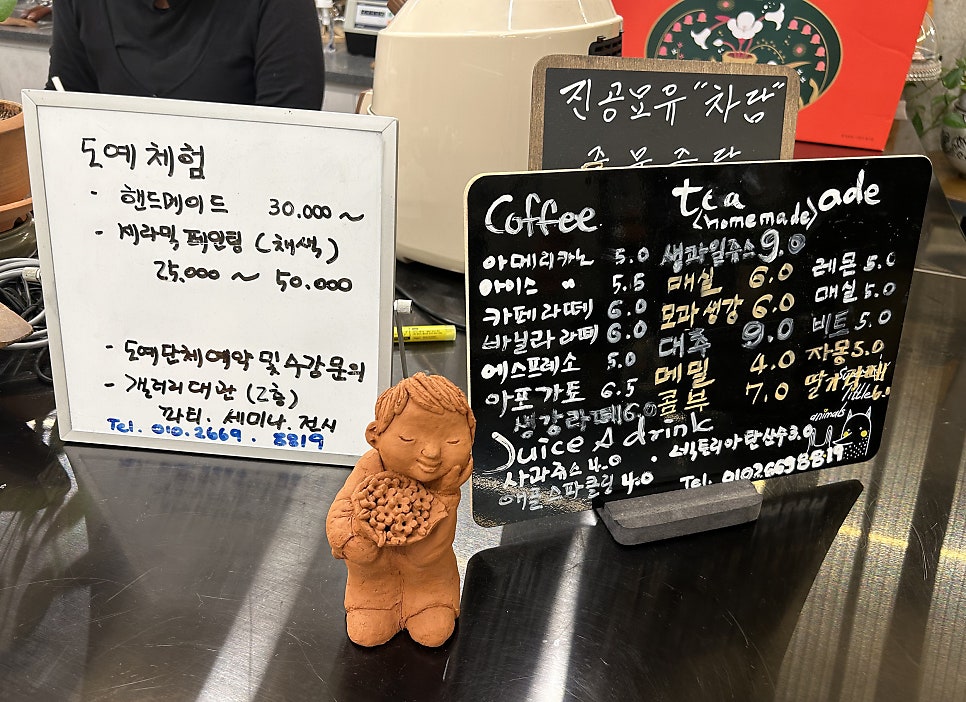 도예 체험
- 핸드메이드 30.000 ~
- 세라믹 페인팅 (채색)
25,000 ~ 50.000
- 도예단체예약 및 수강문의
- 갤러리 대관 (2층)
파티. 세미나. 전시
Tel. 010.2669.8819
진공포유 "차담"
Coffee
아메리카노 5.0
아이스 " 5.5
카페라떼 6.0
바닐라라떼 6.0
에스프레소 5.0
아포가토 6.5
생강라떼 6.0
tea
(homemade)
생과일주스 9.0
매실 6.0
모과생강 6.0
대추 9.0
메밀 4.0
콤부 7.0
ade
레몬 5.0
매실 5.0
비트 5.0
자몽 5.0
6.0
little
animals
Juice & drink
사과쥬스 4.0
애플스파클링 4.0
· 섹토리아탄산수 3.0
Tel. 010 2669 8819